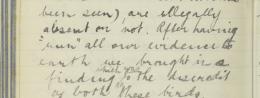 been seen), are illegally
absent or not. After having
"run" all our evidence to
earth we brought in a
finding which was to the discredit
of both of these birds.